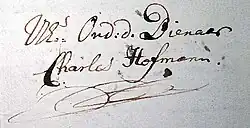 UEs: Ond: d: Dienaar
Charles Hofmann.